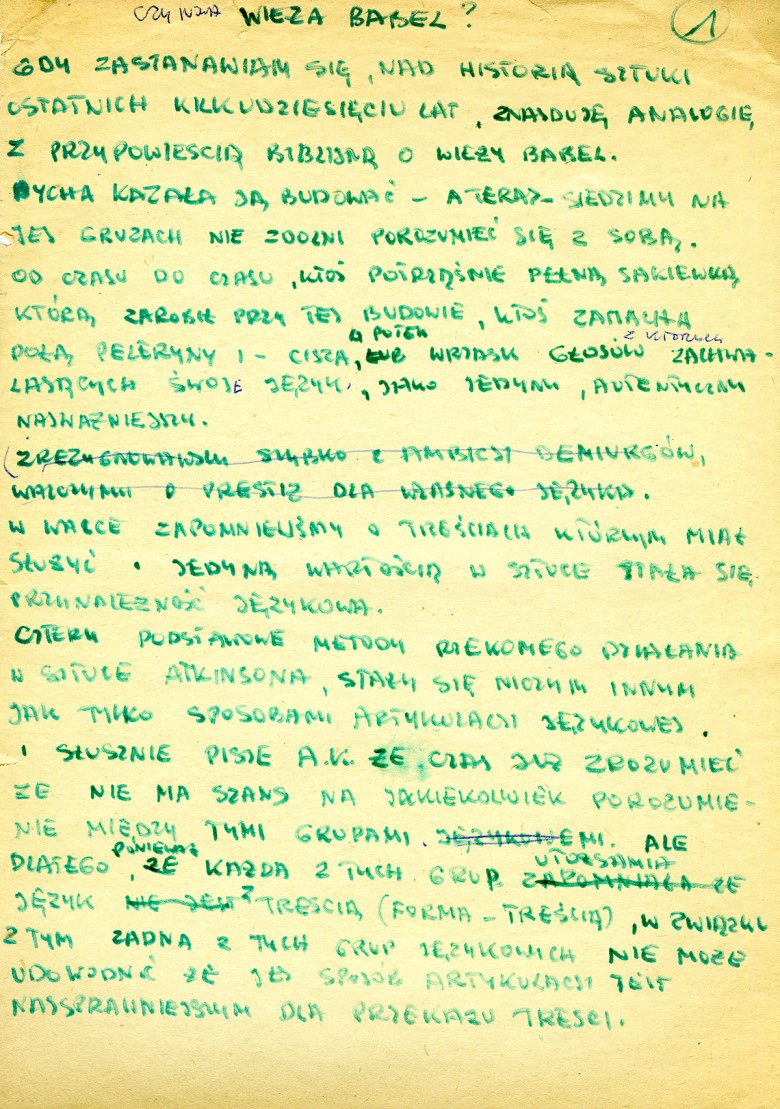 CZY NOWA WIEŻA BABEL? 1
GDY ZASTANAWIAM SIĘ, NAD HISTORIĄ SZTUKI
OSTATNICH KILKUDZIESIĘCIU LAT, ZNAJDUJĘ ANALOGIE,
Z PRZYPOWIEŚCIĄ BIBLIJNĄ O WIEŻY BABEL.
PYCHA KAZAŁA JĄ BUDOWAĆ – A TERAZ – SIEDZIMY NA
JEJ GRUZACH NIE ZDOLNI POROZUMIEĆ SIĘ Z SOBĄ.
OD CZASU DO CZASU, KTOŚ POTRZĄŚNIE PEŁNĄ SAKIEWKĄ
KTÓRĄ ZAROBIŁ PRZY TEJ BUDOWIE, KTOŚ ZAMACHA
POŁĄ PELERYNY I – CISZA, A POTEM LUB WRZASK GŁOSÓW Z KTÓRYCH ZACHWA-
LAJĄCYCH SWOJE JĘZYK, JAKO JEDYNY, AUTENTYCZNY
NAJWAŻNIEJSZY.
(ZREZYGNOWAWSZY SZYBKO Z AMBICJI DEMIURGÓW,
WALCZYMY O PRESTIŻ DLA WŁASNEGO JĘZYKA.
W WALCE ZAPOMNIELIŚMY O TREŚCIACH KTÓRYM MIAŁ
SŁUŻYĆ. JEDYNĄ WARTOŚCIĄ W SZTUCE STAŁA SIĘ
PRZYNALEŻNOŚĆ JĘZYKOWA.
CZTERY PODSTAWOWE METODY RZEKOMEGO DZIAŁANIA
W SZTUCE ATKINSONA, STAŁY SIĘ NICZYM INNYM
JAK TYLKO SPOSOBAMI ARTYKULACJI JĘZYKOWEJ.
I SŁUSZNIE PISZE A.K. ŻE CZAS JUŻ ZROZUMIEĆ
ŻE NIE MA SZANS NA JAKIEKOLWIEK POROZUMIE-
NIE MIĘDZY TYMI GRUPAMI. JĘZYKOWEMI. ALE
DLATEGO, PONIEWAŻ ŻE KAŻDA Z TYCH GRUP UTOŻSAMIA ZAPOMNIAŁA ŻE
JĘZYK NIE JEST Z TREŚCIĄ (FORMA – TREŚCIĄ), W ZWIĄZKU
Z TYM ŻADNA Z TYCH GRUP JĘZYKOWYCH NIE MOŻE
UDOWODNIĆ ŻE JEJ SPOSÓB ARTYKULACJI JEST
NAJSPRAWNIEJSZYM DLA PRZEKAZU TREŚCI.